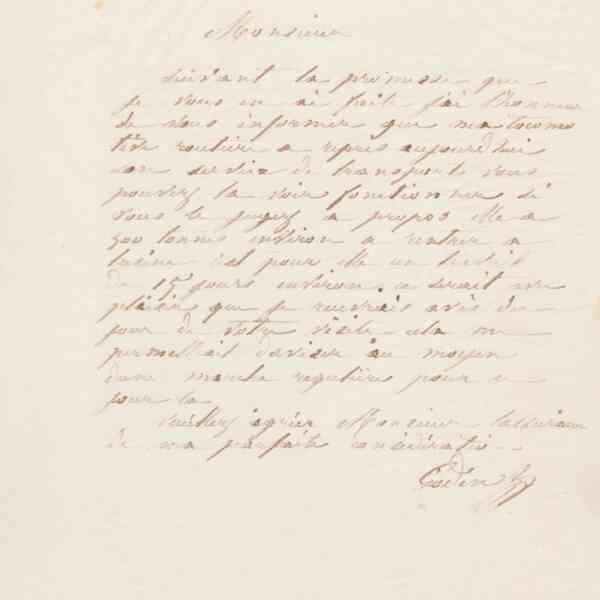 Monsieur
suivant la promesse que
je vous en ai faite j'ai l'honneur
de vous informer que ma locomo
tive routière a repris aujourdhui
son service de transport vous
pouvez la voir fonctionner si
vous le jugez a propos elle a
500 tonnes environ a rentrer a
lusine cest pour elle un travail
de 15 jours environ. ce serait avec
plaisir que je recevrais avis du
jour de votre visite cela me
permettrait daviser au moyen
dune marche regulière pour ce
jour la
veuillez agréer Monsieur lassurance
de ma parfaite considération